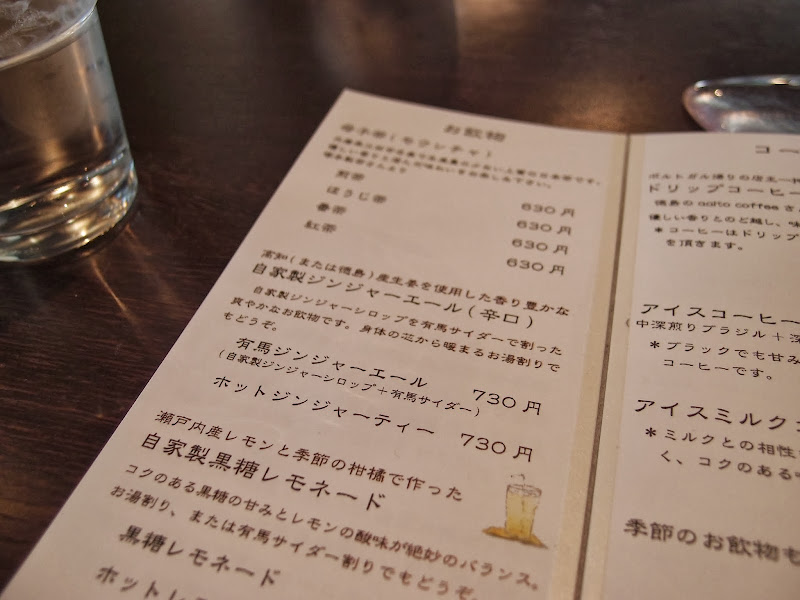 お飲物
母子茶(モウシチャ)
煎茶 630円
ほうじ茶 630円
番茶 630円
紅茶 630円
高知(または徳島)産生姜を使用した香り豊かな
自家製ジンジャーエール(辛口)
自家製ジンジャーシロップを有馬サイダーで割った
爽やかなお飲物です。身体の芯から暖まるお湯割りで
もどうぞ。
有馬ジンジャーエール 730円
(自家製ジンジャーシロップ+有馬サイダー)
ホットジンジャーティー 730円
瀬戸内産レモンと季節の柑橘で作った
自家製黒糖レモネード
コクのある黒糖の甘みとレモンの酸味が絶妙のバランス。
お湯割り、または有馬サイダー割りでもどうぞ。
黒糖レモネード
ホットレ
コー
ポルトガル帰りの店主
ドリップコーヒー
徳島の aalto coffee さ
優しい香りとのど越し、味
*コーヒーはドリップ
を頂きます。
アイスコーヒー
(中深煎りブラジル+深
*ブラックでも甘み
コーヒーです。
アイスミルク
*ミルクとの相性
く、コクのある
季節のお飲物も